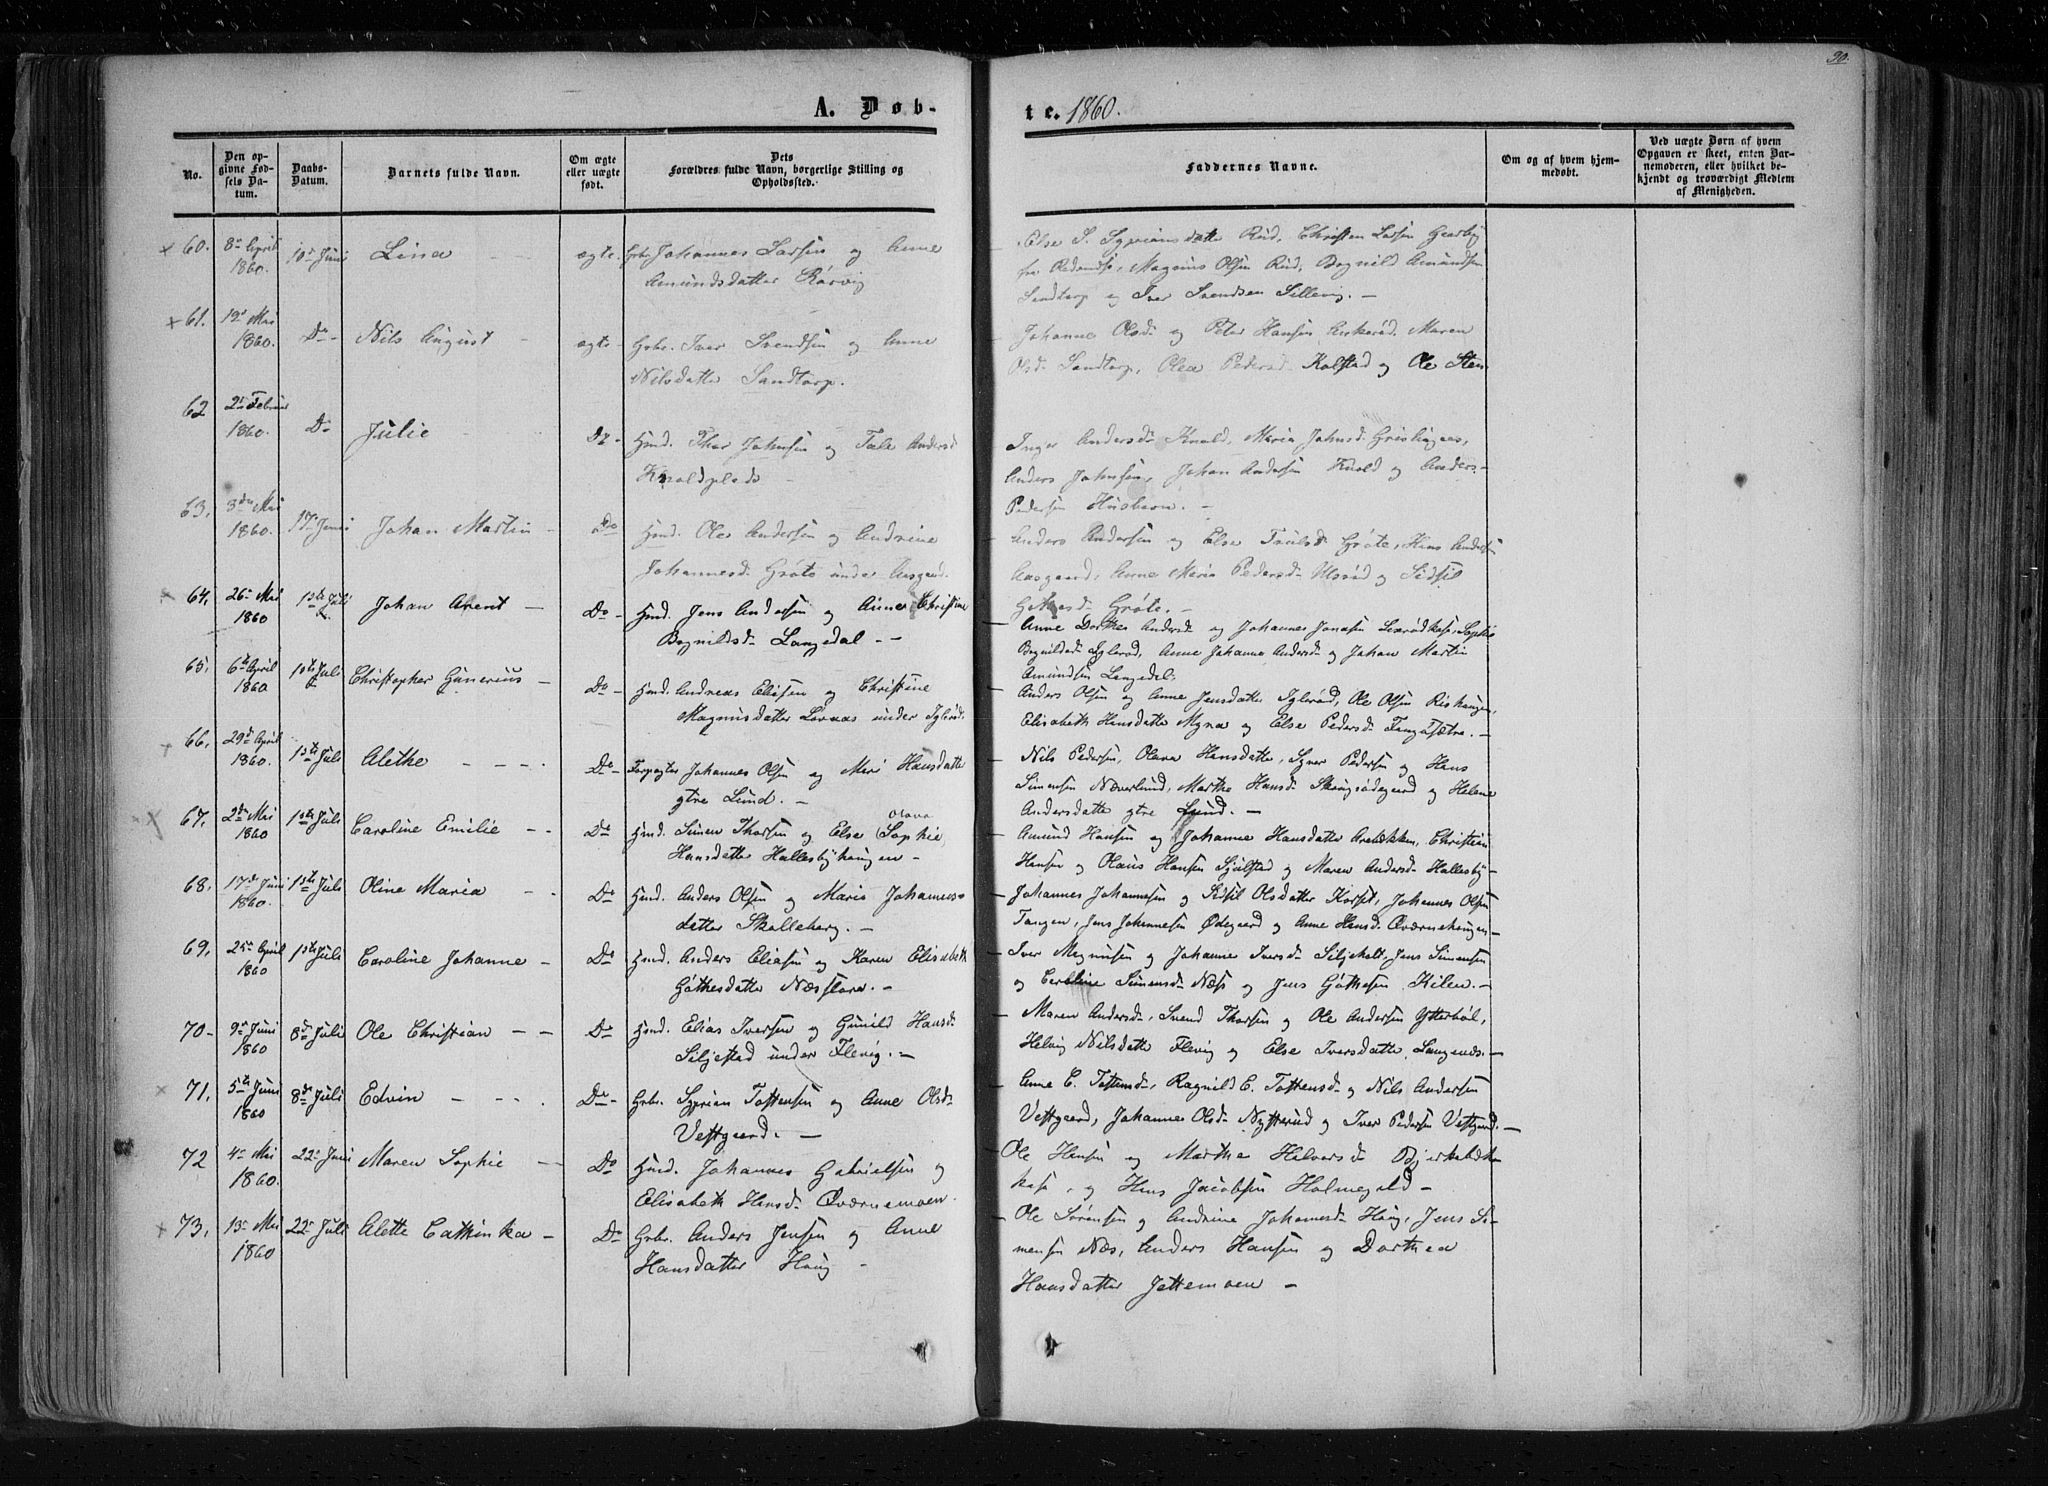 30.
A. Døb-
te. 1860.
No.
Den op-
givne Fød-
sels Da-
tum.
Daabs-
Datum.
Barnets fulde Navn.
Om ægte
eller uægte
født.
Dets
Forældres fulde Navn, borgerlige Stilling og
Opholdssted.
Faddernes Navne.
Om og af hvem hjem-
medøbt.
Ved uægte Børn af hvem
Opgaven er skeet, enten Bar-
nemoderen, eller hvilket be-
kjendt og troværdigt Medlem
af Menigheden.
60. 8de April 1860. 10de Juni Lina ægte. Gbr. Johannes Larsen og Anne
Amundsdatter Rørvig
Else S. Syprians datter Rud, Christen Larsen
Magnus Olsen Rud, Bognild Amundsen
Sandtorp og Iver Svendsen Sillevig. -
61. 12 Mai 1860. Do Nils August ægte Gbr. Iver Svendsen og Anne
Nilsdatter Sandtorp.
Johanne Olsd. og Peter Hansen Askerød, Maren
Olsd. Sandtorp, Olea Pedersd. Kolstad og Ole Sten
62 2de Februar 1860. Do Julie Do Hmd. Thor Johnsen og Tale Andersd
Knoldplads
Inger Andersd. Knold, Maria Johnsd.
Anders Johnsen, Johan Andersen Knold og Anders
Pedersen
63. 3die Mai 1860. 17de Juni Johan Martin Do Hmd. Ole Andersen og Andrine
Johannesd. Grøte under Aasgaard.
Anders Andersen og Else Trulsd. Grøte, Hans Andersen
Aasgaard, Anne Maria Pedersd. Ussrød og Sidsil
Grøte. -
64. 26de Mai 1860 1ste Juli Johan Arent Do Hmd. Jens Andersen og Anne Christine
Bognildsd. Langedal. -
Anne Dorthea Andersd. og Johannes Jonasen
Bognildsd. Iglerød, Anne Johanne Andersd. og Johan Martin
Amundsen Langedal.
65. 6te April 1860 1ste Juli Christopher Gunerius Do Hmd. Andreas Eliasen og Christine
Magnusdatter under Iglerød.
Anders Olsen og Anne Jensdatter Iglerød, Ole Olsen Rishaugen,
Elisabeth Hansdatter Myra og Else Pedersd. Tangasætre. -
66. 29de April 1860. 1ste Juli Alethe Do Forpagter Johannes Olsen og Mari Hansdatter
ytre Lund. -
Nils Pedersen, Olava Hansdatter, Syver Pedersen og Hans
Simensen Næverlund, Marthe Hansd. Skrugsødegaard og Helene
Andersdatter ytre Lund. -
67. 2den Mai 1860 1ste Juli Caroline Emilie Do Hmd. Simen Thorsen og Else Sophie
Olava
Hansdatter Hallesbyhaugen -
Amund Hansen og Johanne Hansdatter Arebækken, Christian
Hansen og Olaus Hansen Sjulstad og Maren Andersd. Hallesby
68. 17de Juni 1860. 1ste Juli Oline Maria Do Hmd. Anders Olsen og Marie Johannes-
datter Skalleberg. -
Johannes Johannesen og Sidsil Olsdatter Korset, Johannes Olsen
Tangen, Jens Johannesen Ødegaard og Anne Hansd. Qværnehaugen -
69. 25de April 1860 1ste Juli Caroline Johanne Do Hmd. Anders Eliasen og Karen Elisabeth
Göthesdatter Næsstora. -
Iver Magnusen og Johanne Iversd. Siljeholt, Jens Simensen
og Caroline Simensd. Næss og Jens Göthesen Kilen. -
70 9de Juni 1860 8de Juli Ole Christian Do Hmd. Elias Iversen og Gunild Hansd.
Siljestad under Flevig. -
Maren Andersd., Svend Thorsen og Ole Andersen Ytterbøl,
Helvig Nilsdatter Flevig og Else Iversdatter Langenæs. -
71. 5te Juni 1860 8de Juli Edvin Do Gbr. Syprian Tostensen og Anne Olsd.
Vestgaard. -
Anne C. Tostensd., Ragnild C. Tostensd. og Nils Andersen
Vestgaard, Johanne Olsd. Nytterud og Iver Pedersen Vestgaard. -
72 4de Mai 1860. 22de Juni Maren Sophie Do Hmd. Johannes Gabrielsen og
Elisabeth Hansd. Qværnemoen.
Ole Hansen og Marthe Halvorsd. Bjerkebæk-
kasa, og Hans Jacobsen Holmegild -
73. 13de Mai 1860 22de Juli Alette Cathinka Do Gbr. Anders Jensen og Anne
Hansdatter Haug -
Ole Sørensen og Andrine Johannesd. Haug, Jens Si-
mensen Næs, Anders Hansen og Dorthea
Hansdatter Jettemoen -